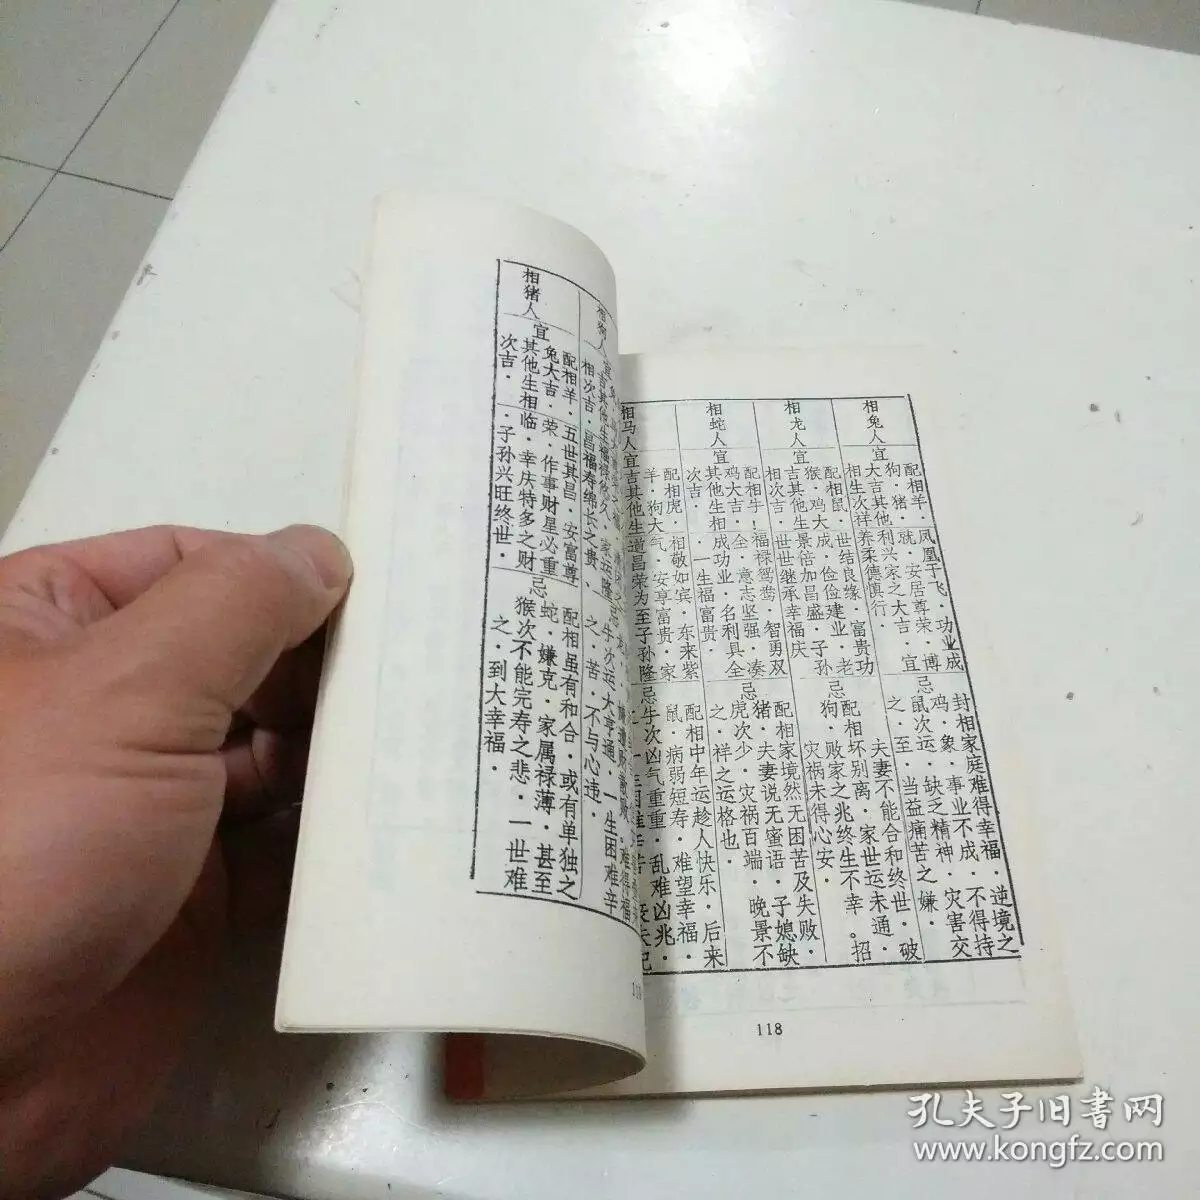 相兔人
宜
配相羊·
狗·猪·
大吉其他
相生次祥
凤凰于飞·功业成
就·安居尊荣·博
利兴家之大吉·宜
养柔德慎行·
忌
封相家庭难得幸福·逆境之
鸡·象·事业不成·不得持
鼠次运·缺乏精神·灾害交
之·至·当益痛苦之嫌·
相龙人
宜
配相鼠·
猴·鸡大
吉其他生
相次吉·
世结良缘·富贵功
成·俭俭建业·老
景倍加昌盛·子孙
世世继承幸福庆
忌
夫妻不能合和终世·破
配相坏别离·家世运未通·
狗·败家之兆终生不幸。招
灾祸未得心安·
相蛇人
宜
配相牛!
鸡大吉·
其他生相
次吉·
福禄鸳鸯·智勇双
全·意志坚强·凑
成功业·名利具全
·一生福富贵·
忌
配相家境然无困苦及失败·
猪·夫妻说无蜜语·子媳缺
虎次少·灾祸百端·晚景不
之·祥之运格也·
相马人
宜
配相虎·
羊·狗大
吉其他生
相敬如宾·东来紫
气·安享富贵·家
道昌荣为至子孙隆
忌
配相中年运趁人快乐·后来
鼠·病弱短寿·难望幸福·
牛次凶气重重·乱难凶兆·
118
相狗人
宜
吉其他生
相次吉·
福祥悠久·家运隆
昌福寿绵长之贵·
忌
牛次运大亨通·一生困难辛
之·苦·不与心违·
相猪人
宜
配相羊·
兔大吉·
其他生相
次吉·
五世其昌·安富尊
荣·作事财星必重
临·幸庆特多之财
·子孙兴旺终世·
忌
配相虽有和合·或有单独之
蛇·嫌克·家属禄薄·甚至
猴次不能完寿之悲·一世难
之·到大幸福·
孔夫子旧书网
www.kongfz.com